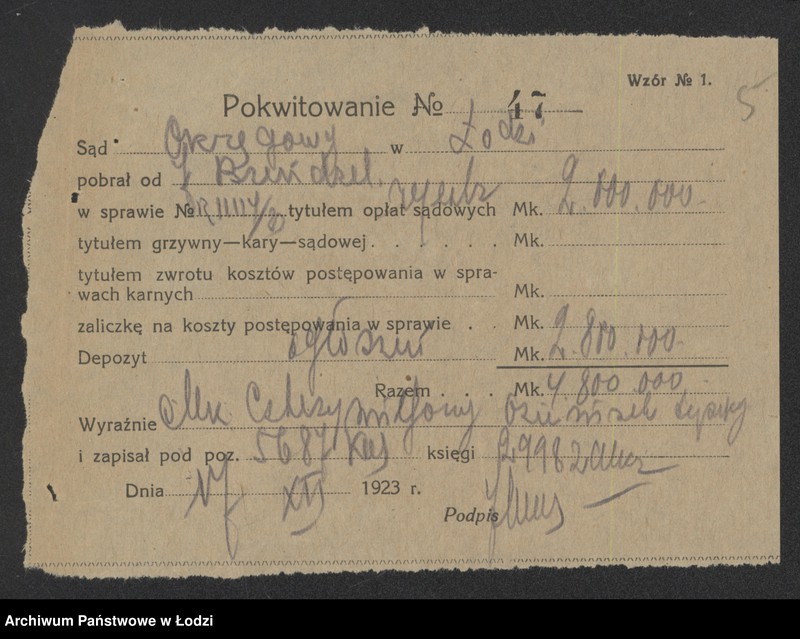 Wzór № 1.
5
Pokwitowanie № 47
Sąd Okręgowy w Łodzi
pobrał od
w sprawie № tytułem opłat sądowych Mk. 2.000.000
tytułem grzywny—kary—sądowej . . . . . . Mk.
tytułem zwrotu kosztów postępowania w spra-
wach karnych Mk.
zaliczkę na koszty postępowania w sprawie . . Mk. 2.800.000
Depozyt ogłoszeń Mk.
Razem . . . Mk. 4.800.000
Wyraźnie Mk Cztery miljony
i zapisał pod poz. 5687 księgi 29982
Dnia XII 1923 r.
Podpis
Archiwum Państwowe w Łodzi